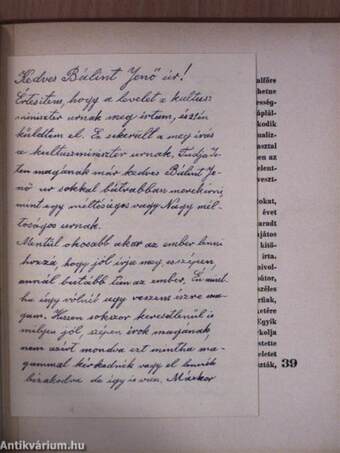 Kedves Bálint Jenő úr!
Értesítem, hogy a levelet a kultusz-
miniszter urnak meg irtam, és
küldtem el. És sikerült a meg irás
a kultuszminiszter urnak. Tudja Is-
ten magának már kedves Bálint Je-
nő ur sokkal bátrabban merek irni
mint egy méltóságos vagy Nagy mél-
tóságos urnak.
Mentül okosabb akar az ember lenni
hozzá, hogy jól irja meg, es szépen,
annál butább lesz az ember, Én mint
ha úgy volnék úgy veszem észre ma-
gam. Hiszen sokszor keresetlenül is
milyen jól, szépen irok magának,
nem azért mondva ezt mintha ma-
gammal kérkednék vagy el lennék
bizakodva de így is van. Máskor
alföre
hetne
esség-
áplál-
kodik
ualiz-
asztal
en az
elent-
veszt-
okat,
évet
aradt
ajátos
kitö-
írta.
nivol-
bátor,
széles
erünk,
ketére
Egyik
rkolja
estette
veletet
oszták,
39
Antikvárium.hu
antikvarium.hu